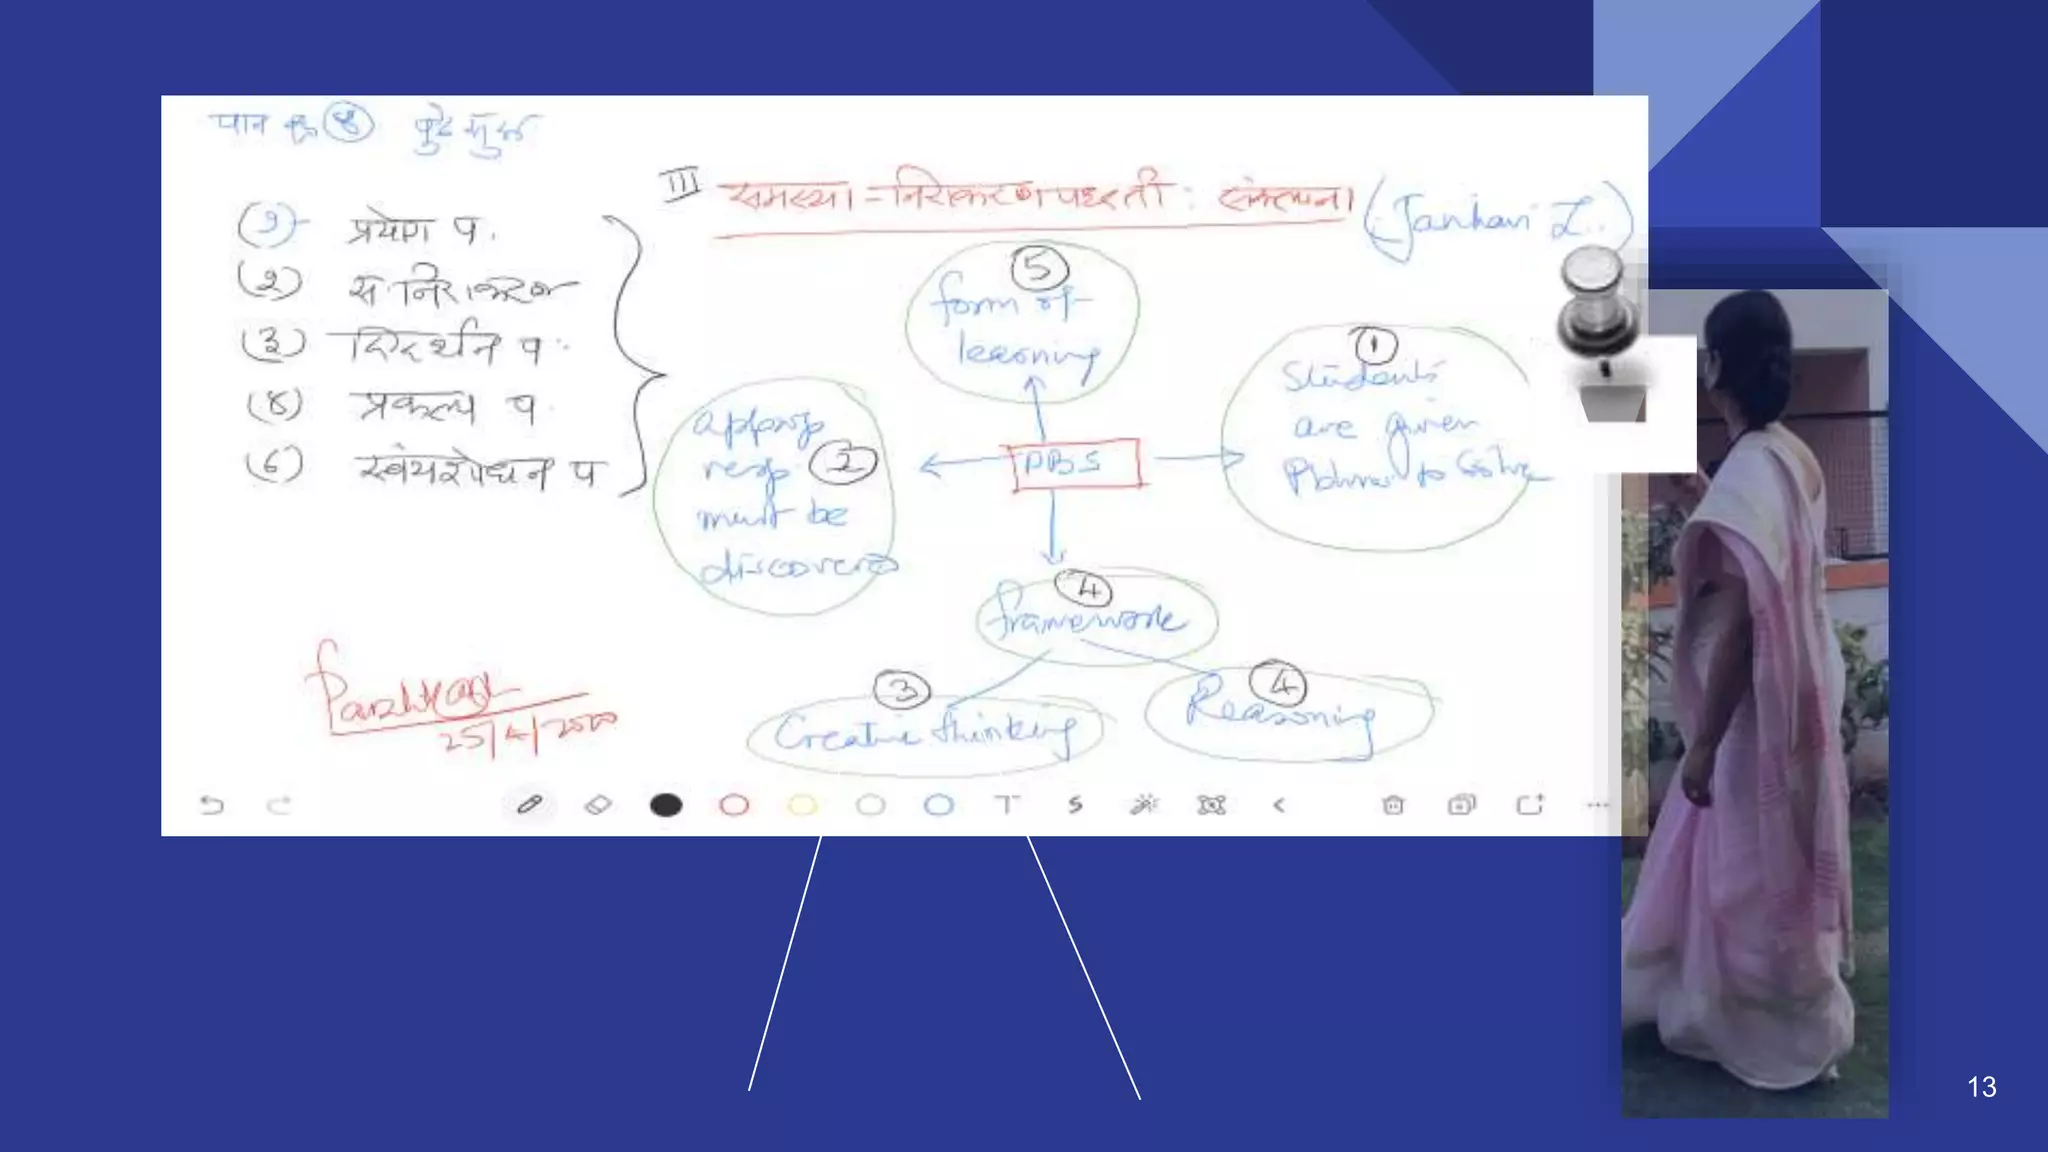 पान क्र ४ पुढे सुरू
(१) प्रयोग प.
(२) स. निराकरण
(३) दिग्दर्शन प.
(४) प्रकल्प प.
(६) स्वंयशोधन प
III समस्या-निराकरण पध्दती : संकल्पना (Janhavi L..)
5
form of
learning
1
Students
are given
to Solve
PBS
approp
resp 2
must be
discovered
4
framework
3
Creative thinking
4
Reasoning
25/4/2020
T
13